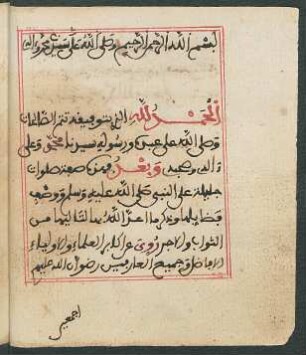 بسم الله الرحمن الرحيم وصلى الله على سيدنا محمد وءاله
الحمد لله الذي بتوفيقه تتم الصالحات
وصلى الله على عبده ورسوله سيدنا محمد وعلى
ءاله وصحبه وبعد فهذه صلوات
جليلة على النبي صلى الله عليه وسلم ووضعت
فضايلها وذكر ما اعد الله بها لتاليها من
الثواب والاجر روي عن اكابر العلماء والاولياء
الافاضل وجميع العارفين رضوان الله عليهم
اجمعين